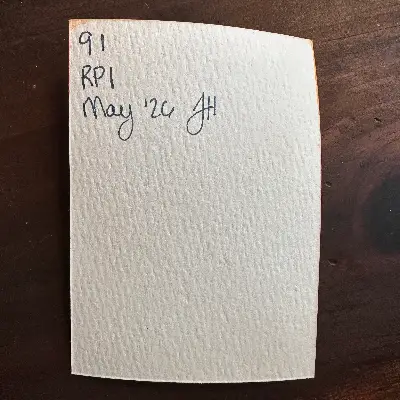 91
RP1
May '26 JH